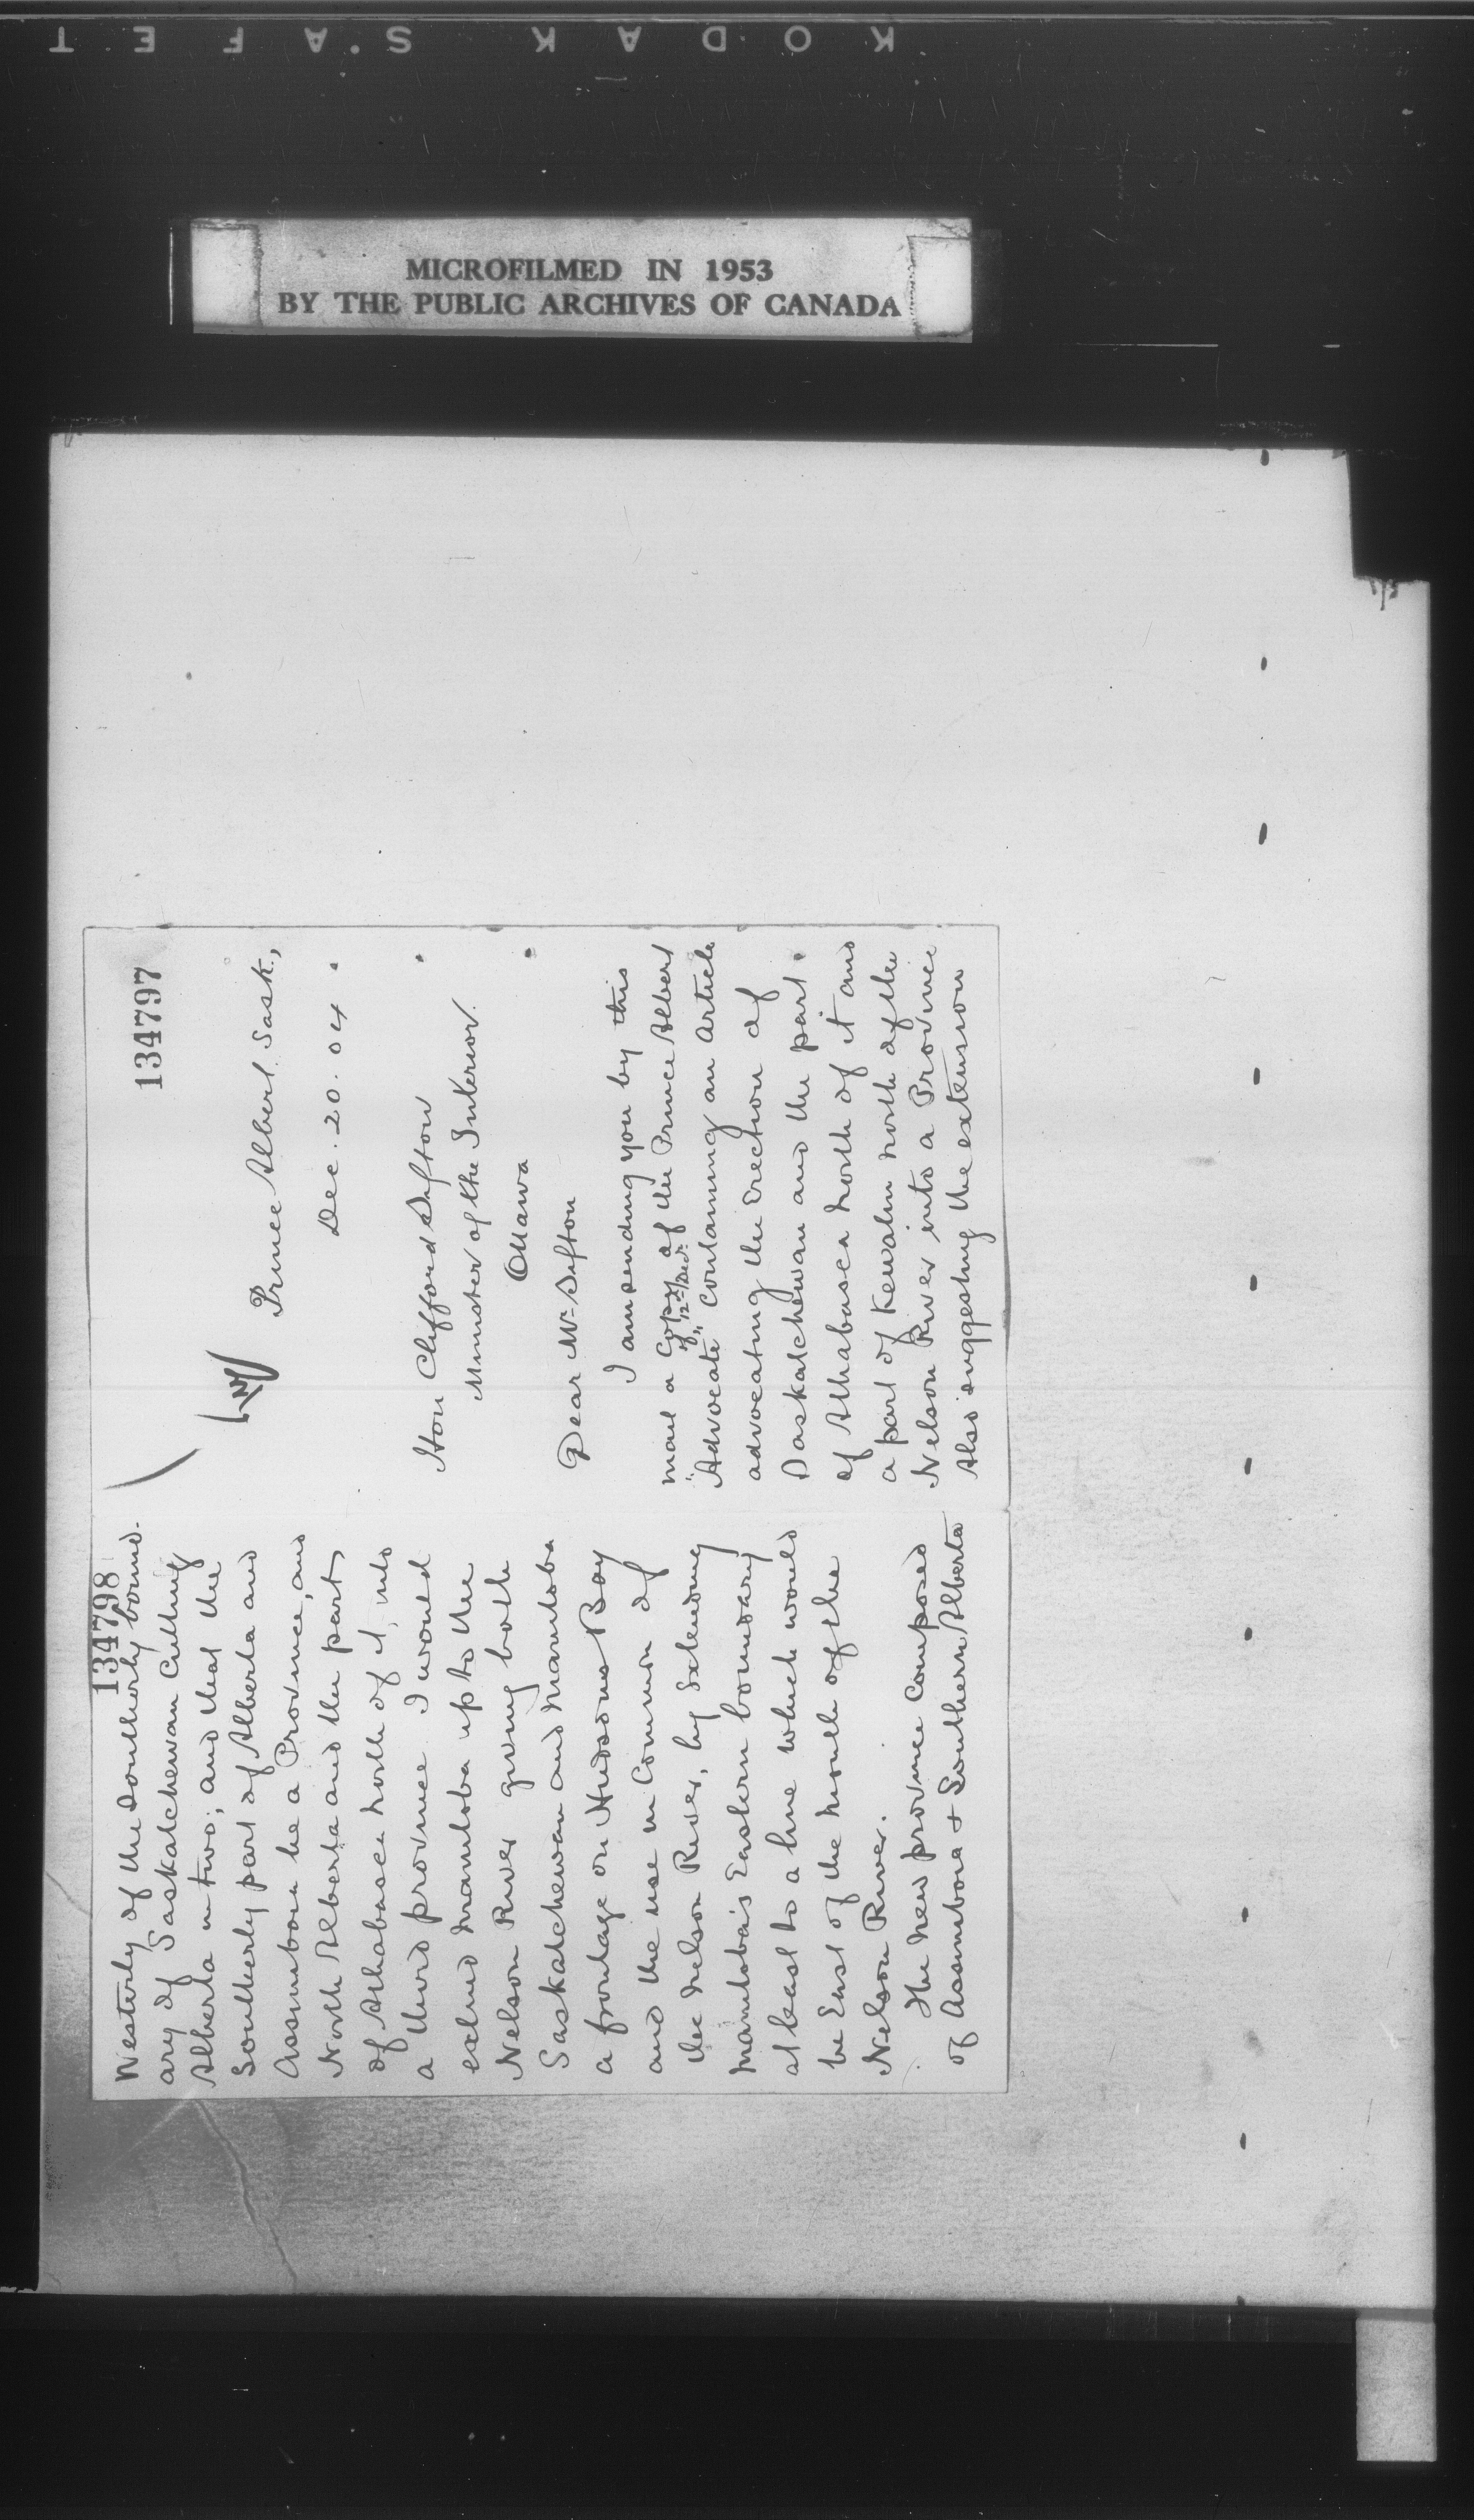 KODAK SAFET
MICROFILMED IN 1953
BY THE PUBLIC ARCHIVES OF CANADA
134797
Prince Albert Sask.,
Dec. 20. 04.
Hon Clifford Sifton
Minister of the Interior
Ottawa
Dear Mr Sifton
I am sending you by this
mail a Copy of the Prince Albert
of 12th Dec.
"Advocate" Containing an article
advocating the Erection of
Saskatchewan and the part
of Athabasca north of it and
a part of Kewatin north of the
Nelson River into a Province
Also suggesting the extension
134798
Westerly of the Southerly bound-
ary of Saskatchewan Cutting
Alberta in two; and that the
Southerly part of Alberta and
Assiniboia be a Province, and
North Alberta and the part
of Athabasca north of it, into
a third province. I would
extend Manitoba up to the
Nelson River giving both
Saskatchewan and Manitoba
a frontage on Hudsons Bay
and the use in Common of
the Nelson River, by Extending
Manitoba's Eastern boundary
at least to a line which would
be East of the mouth of the
Nelson River.
The new province Composed
of Assiniboia & Southern Alberta